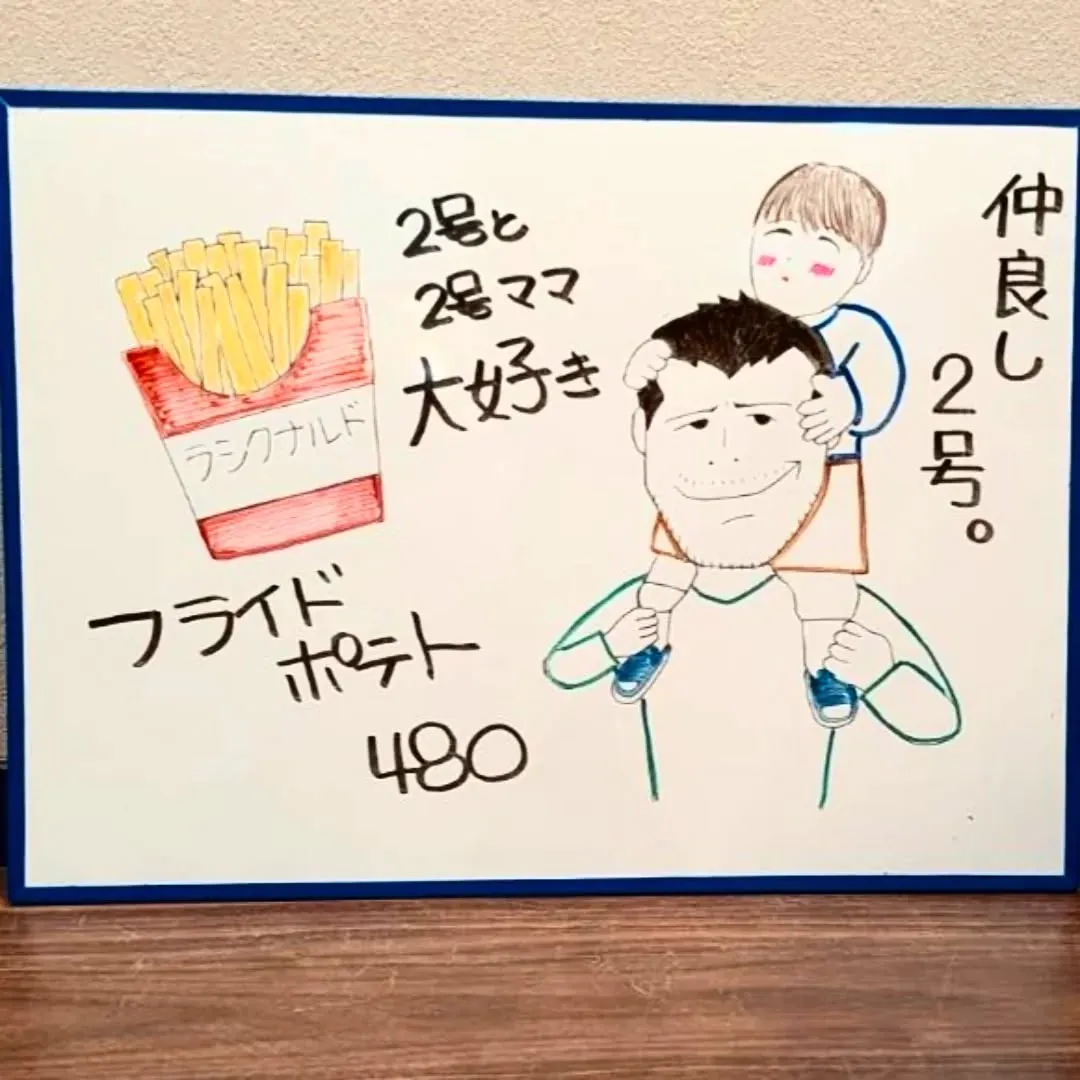 2号と
2号ママ
大好き
ラシクナルド
フライド
ポテト
480
仲良し
2号。